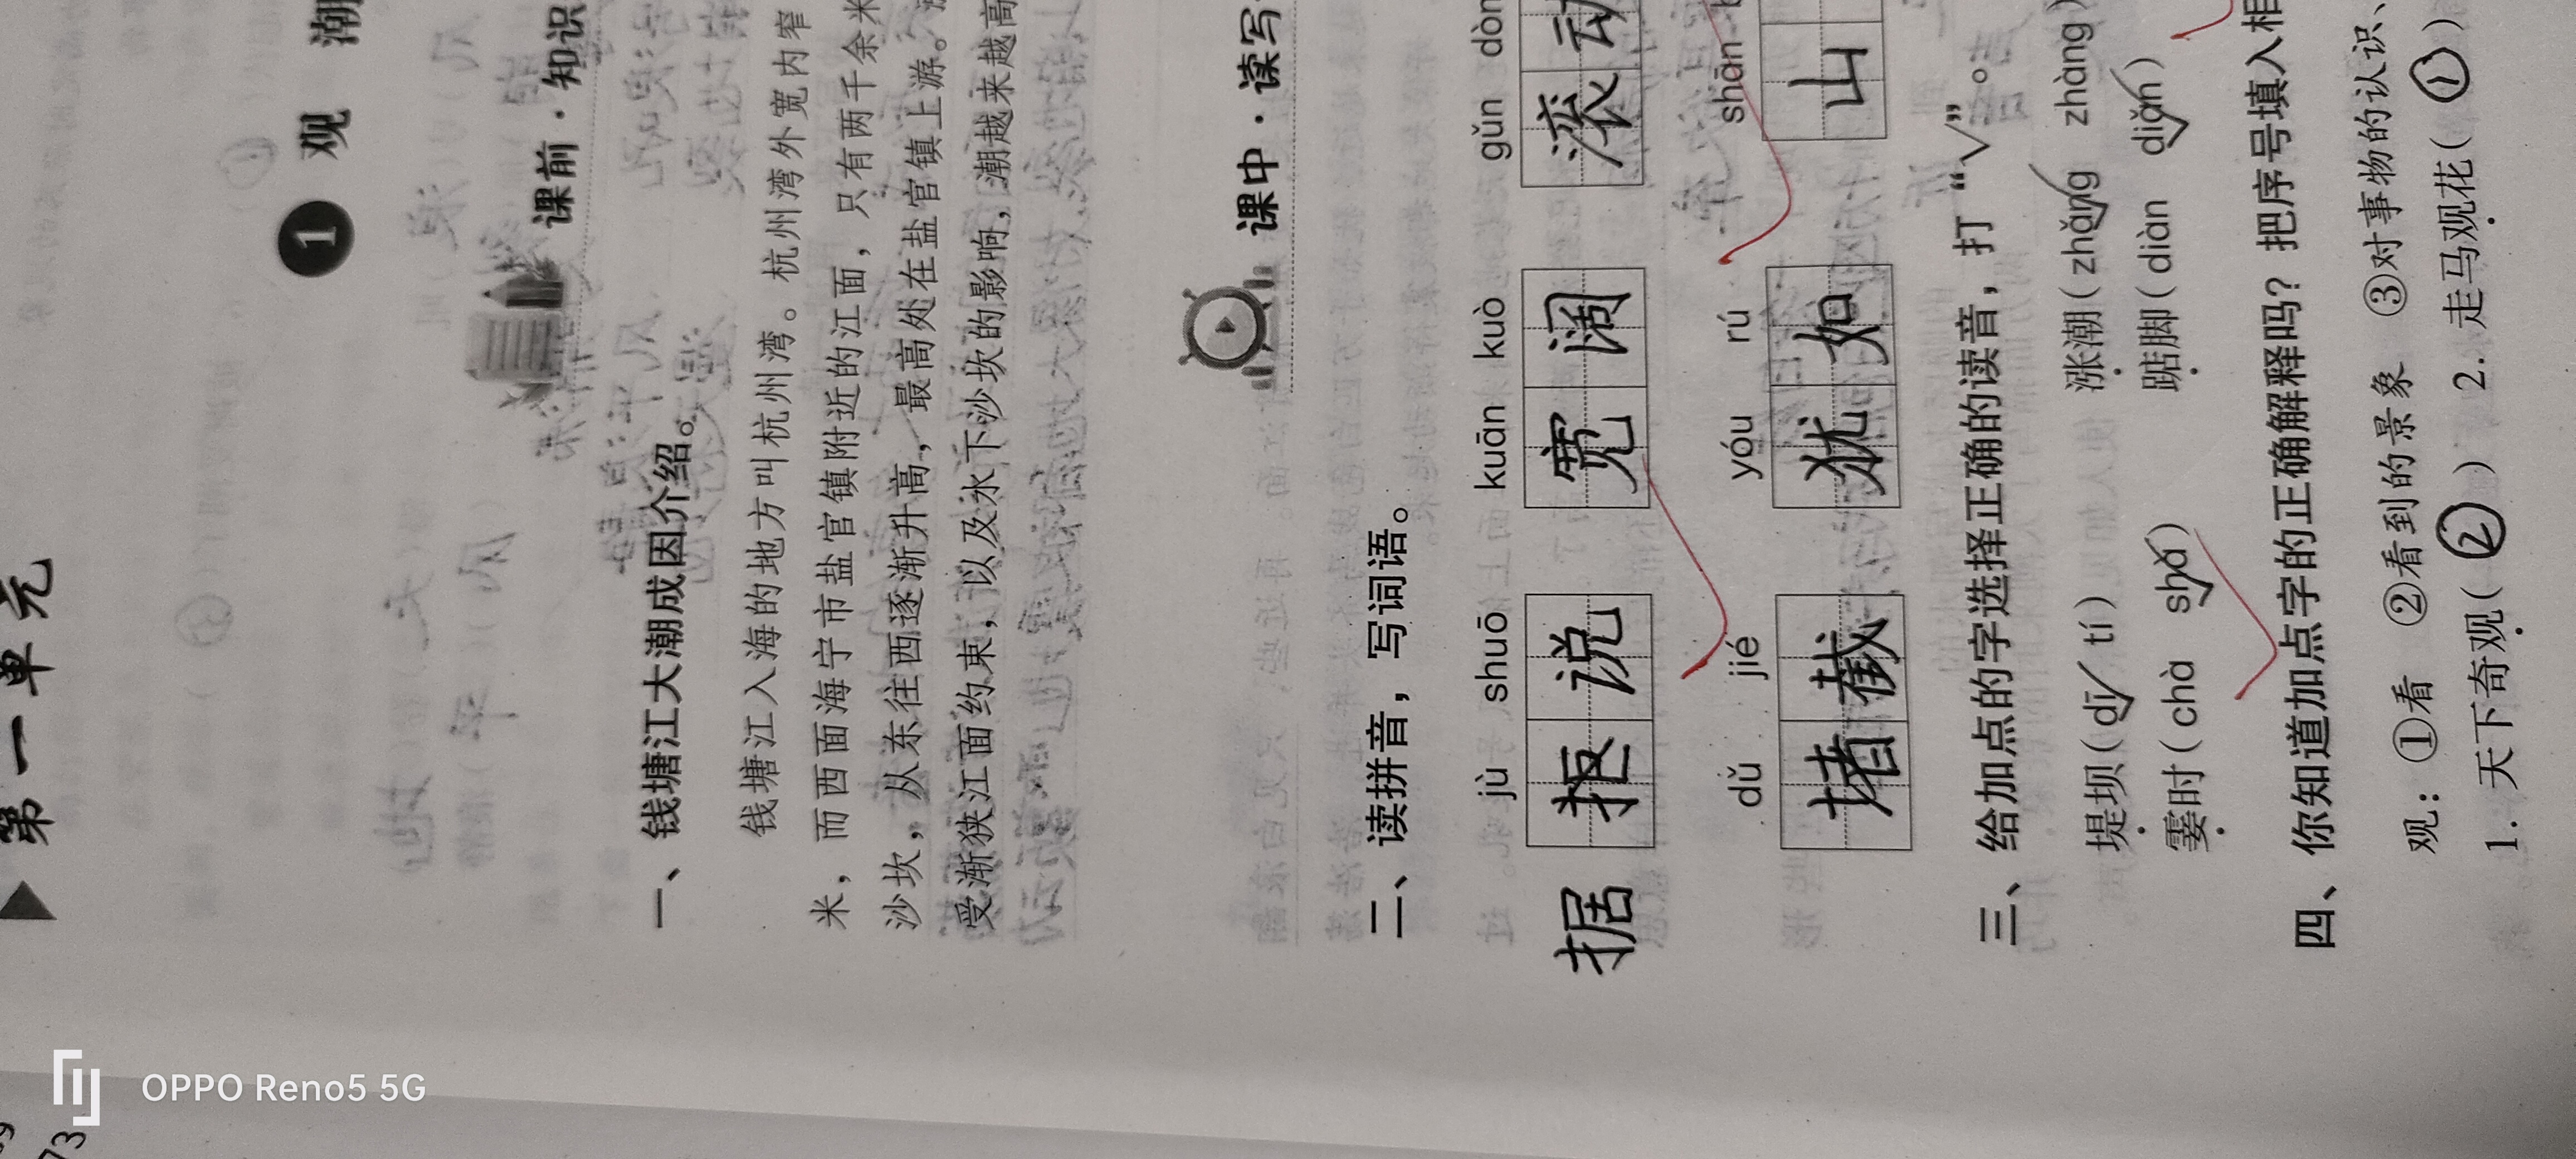 第一单元
1 观 潮
课前·知识
一、钱塘江大潮成因介绍。
钱塘江入海的地方叫杭州湾。杭州湾外宽内窄
米，而西面海宁市盐官镇附近的江面，只有两千余米
沙坎，从东往西逐渐升高，最高处在盐官镇上游。
受渐狭江面约束，以及水下沙坎的影响，潮越来越高
课中·读写
二、读拼音，写词语。
jù shuō kuān kuò gǔn dòn
据 抠说 宽阔 滚动
dǔ jié yóu rú shān
堵截 犹如 山
三、给加点的字选择正确的读音，打“√”。
堤坝(dī tí) 涨潮(zhǎng zhàng)
霎时(chà shà) 踮脚(diàn diǎn)
四、你知道加点字的正确解释吗？把序号填入相
观：①看 ②看到的景象 ③对事物的认识、
1. 天下奇观(②) 2. 走马观花(①)
OPPO Reno5 5G